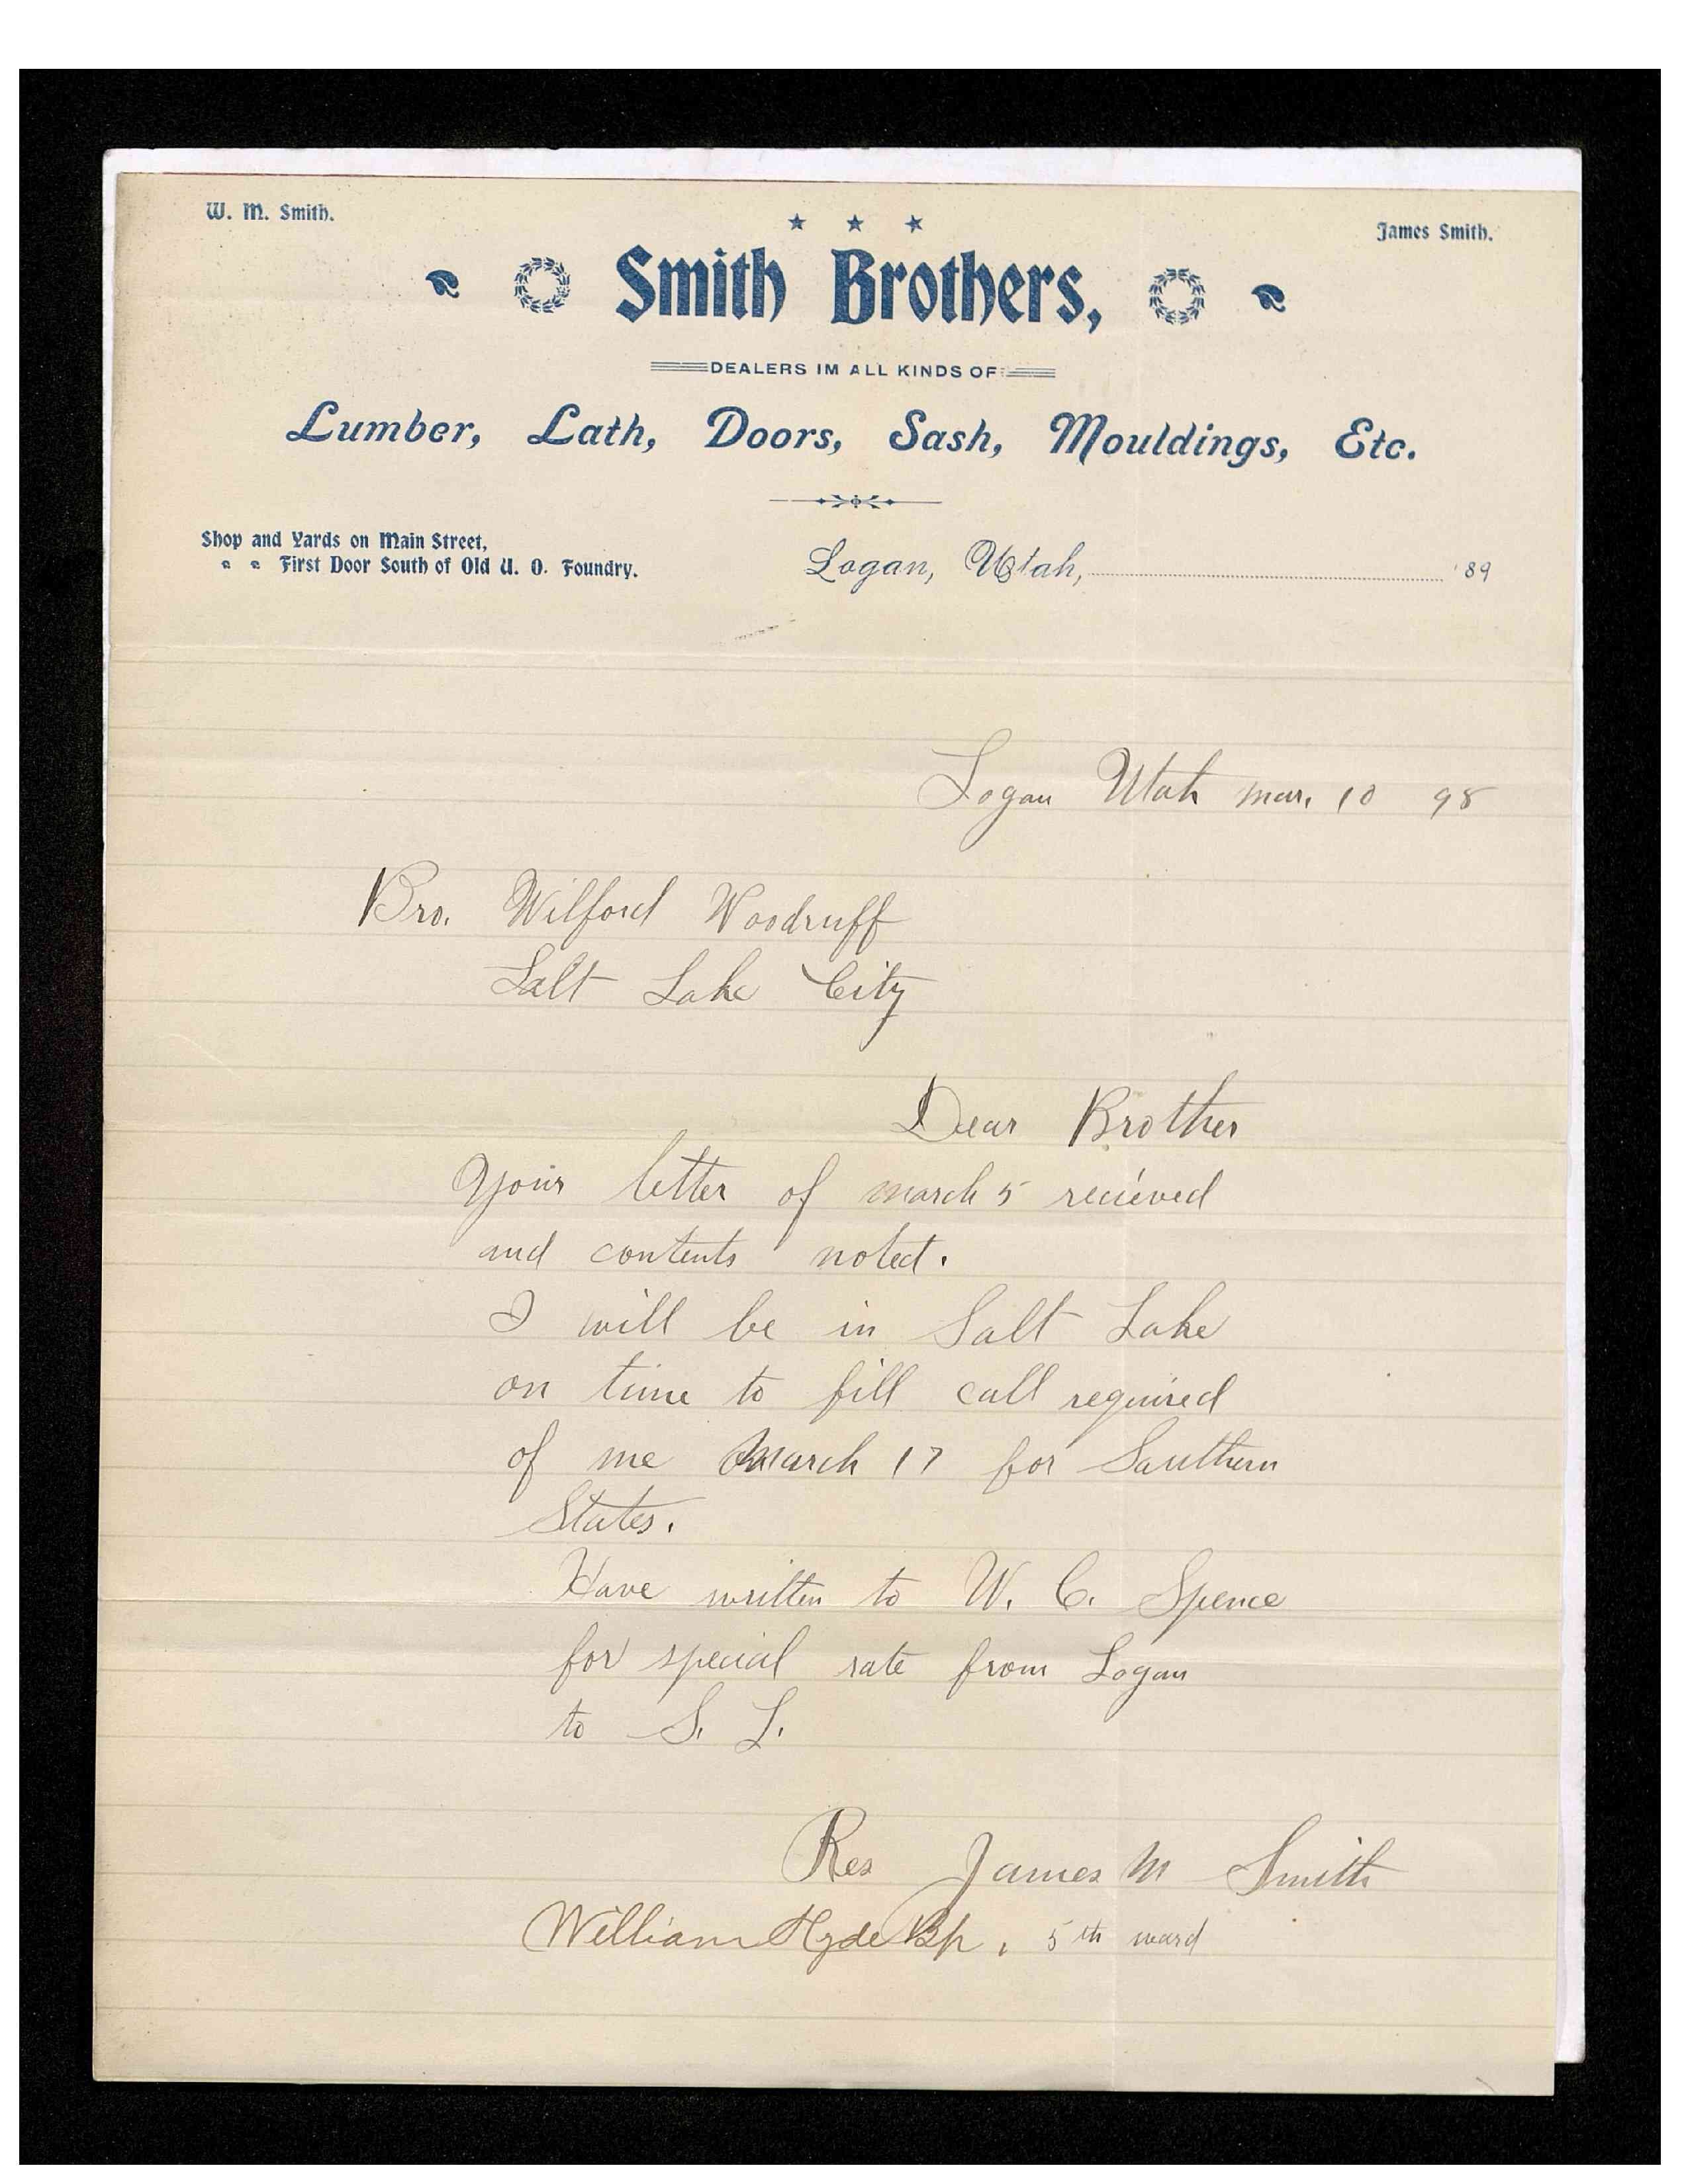 W. M. Smith.
James Smith.
Smith Brothers,
DEALERS IM ALL KINDS OF
Lumber, Lath, Doors, Sash, Mouldings, Etc.
Shop and Yards on Main Street,
" " First Door South of Old U. O. Foundry.
Logan, Utah, 189
Logan Utah Mar. 10 98
Bro. Wilford Woodruff
Salt Lake City
Dear Brother
Your letter of March 5 recieved
and contents noted.
I will be in Salt Lake
on time to fill call required
of me March 17 for Southern
States.
Have written to W. C. Spence
for special rate from Logan
to S. L.
Res James M Smith
William Hyde Bp. 5th ward